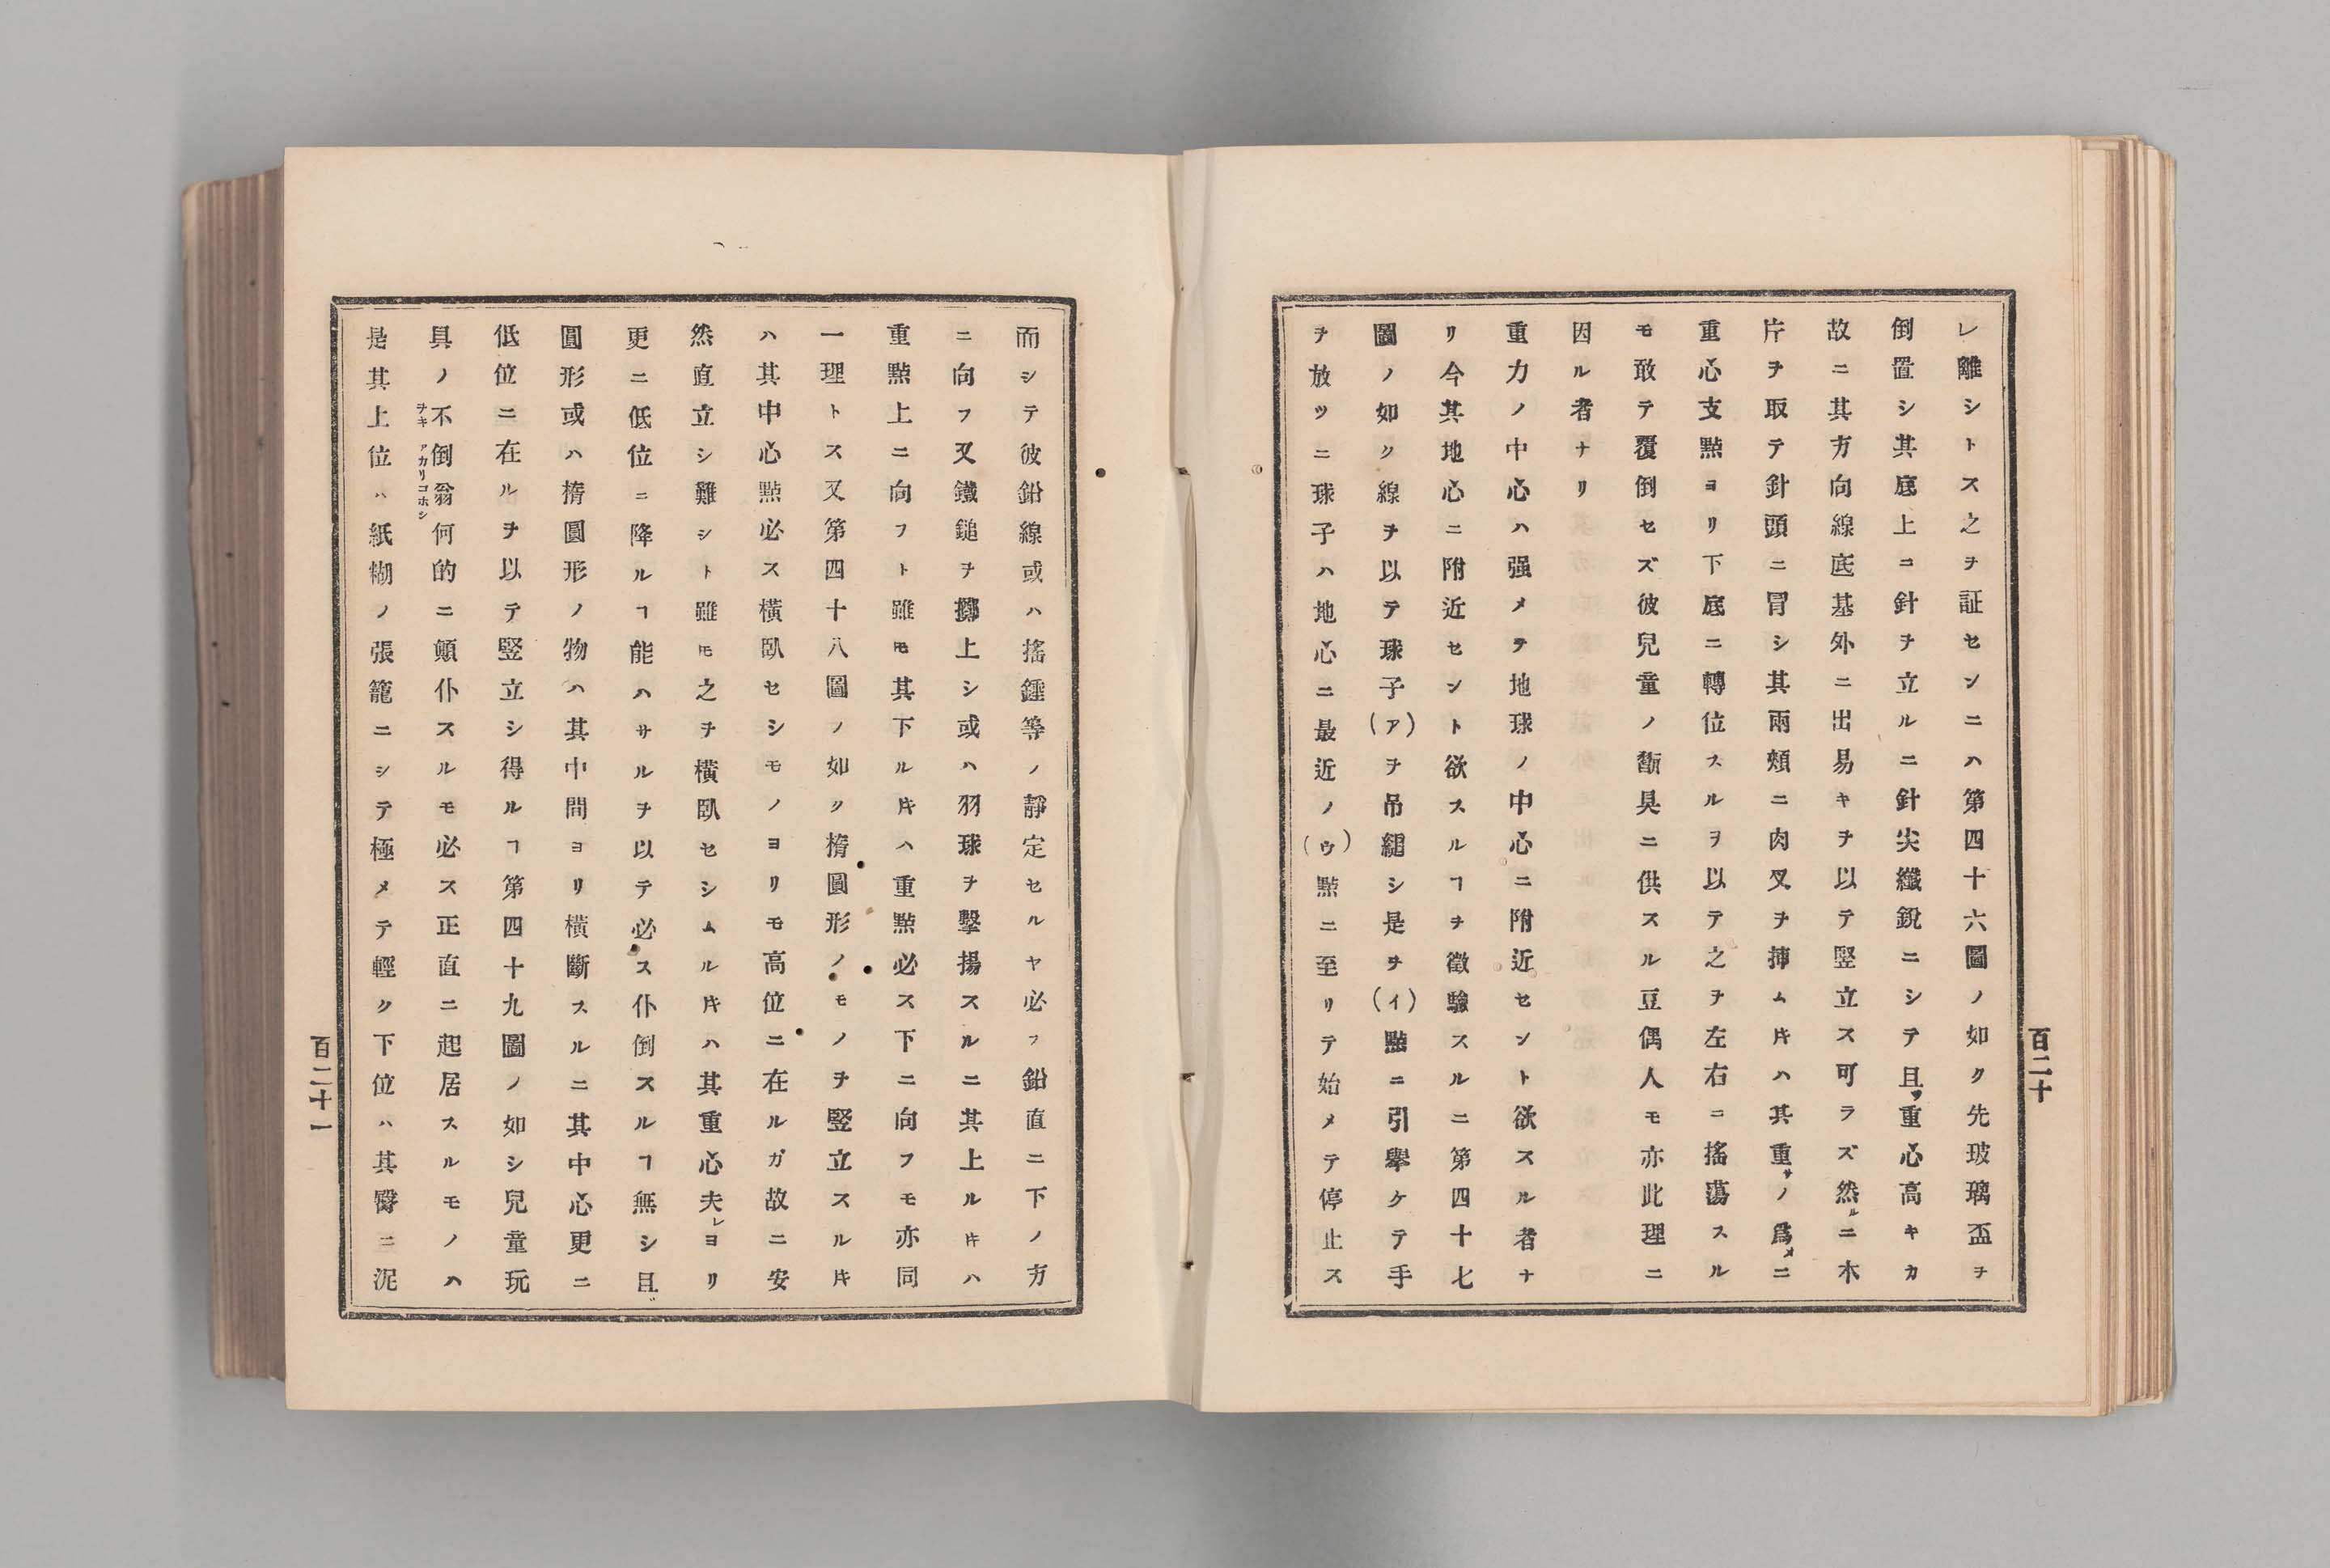 レ離シトス之ヲ証センニハ第四十六圖ノ如ク先玻璃盃ヲ
倒置シ其底上ニ針ヲ立ルニ針尖纖銳ニシテ且ツ重心高キカ
故ニ其方向線底基外ニ出易キヲ以テ竪立ス可ラズ然ルニ木
片ヲ取テ針頭ニ冒シ其兩頰ニ肉叉ヲ揷ムㇳキハ其重サノ爲メニ
重心支點ヨリ下底ニ轉位スルヲ以テ之ヲ左右ニ搖蕩スル
モ敢テ覆倒セズ彼兒童ノ翫具ニ供スル豆偶人モ亦此理ニ
因ル者ナリ
重力ノ中心ハ强メテ地球ノ中心ニ附近セント欲スル者ナ
リ今其地心ニ附近セント欲スルヿヲ徵驗スルニ第四十七
圖ノ如ク線ヲ以テ球子(ア)ヲ吊縋シ是ヲ(イ)點ニ引擧ケテ手
ヲ放ツニ球子ハ地心ニ最近ノ(ウ)點ニ至リテ始メテ停止ス
百二十
而シテ彼鉛線或ハ搖錘等ノ靜定セルヤ必ラ鉛直ニ下ノ方
ニ向フ又鐵鎚ヲ擲上シ或ハ羽球ヲ擊揚スルニ其上ルㇳキハ
重點上ニ向フト雖𪜈其下ルㇳキハ重點必ス下ニ向フモ亦同
一理トス又第四十八圖ノ如ク橢圓形ノモノヲ竪立スルㇳキ
ハ其中心點必ス橫臥セシモノヨリモ高位ニ在ルガ故ニ安
然直立シ難シト雖𪜈之ヲ橫臥セシムルㇳキハ其重心夫レヨリ
更ニ低位ニ降ルヿ能ハサルヲ以テ必ス仆倒スルヿ無シ且
圓形或ハ橢圓形ノ物ハ其中間ヨリ橫斷スルニ其中心更ニ
低位ニ在ルヲ以テ竪立シ得ルヿ第四十九圖ノ如シ兒童玩
具ノ不倒翁何的ニ顚仆スルモ必ス正直ニ起居スルモノハ
ヲキアカリコホシ
是其上位ハ紙糊ノ張籠ニシテ極メテ輕ク下位ハ其臀ニ泥
百二十一